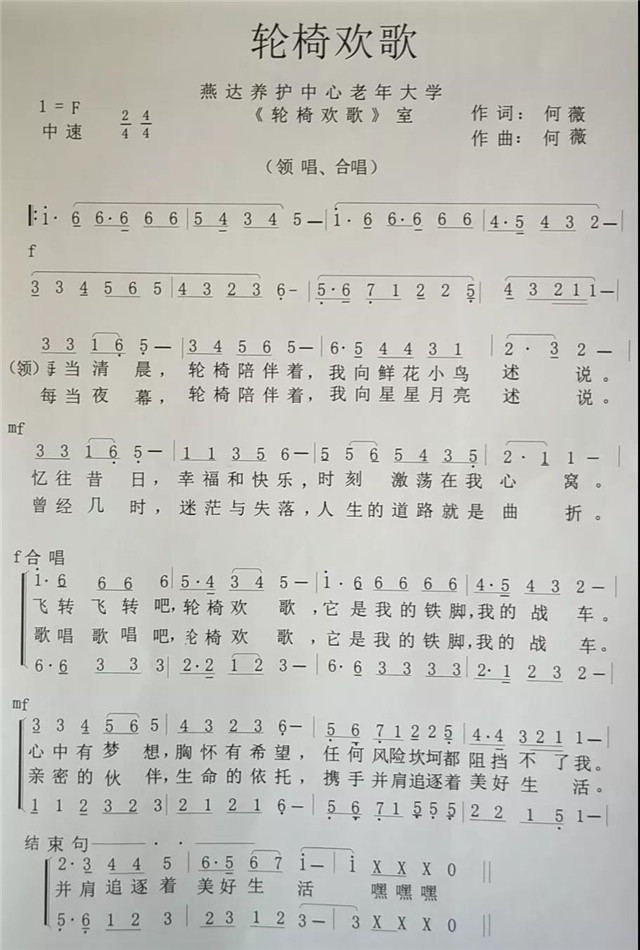 轮椅欢歌
燕达养护中心老年大学
1=F 2/4 4/4 《轮椅欢歌》室 作词：何薇
中速 作曲：何薇
（领唱、合唱）
1· 6 6·6 6 6 6 | 5 4 3 4 5 — | 1· 6 6·6 6 6 6 | 4·5 4 3 2 — |
f
3 3 4 5 6 5 | 4 3 2 3 6 - | 5·6 7 1 2 2 5 | 4 3 2 1 1 — |
3 3 1 6 5 — | 3 4 5 6 5 — | 6·5 6 4 3 1 | 2·3 2 — |
(领)每当清晨，轮椅陪伴着，我向鲜花小鸟述说。
每当夜幕，轮椅陪伴着，我向星星月亮述说。
mf
3 3 1 6 5 — | 1 1 3 5 6 — | 5 5 6 5 4 3 5 | 2·1 1 — |
忆往昔日，幸福和快乐，时刻激荡在我心窝。
曾经几时，迷茫与失落，人生的道路就是曲折。
f合唱
1·6 6 6 6 | 5·4 3 4 5 — | 1· 6 6 6 6 6 6 | 4·5 4 3 2 — |
飞转飞转吧，轮椅欢歌，它是我的铁脚，我的战车。
歌唱歌唱吧，轮椅欢歌，它是我的铁脚，我的战车。
6·6 3 3 3 | 2·2 1 2 3 — | 6·3 3 3 3 3 3 | 2·1 2 3 2 — |
mf
3 3 4 5 6 5 | 4 3 2 3 6 — | 5 6 7 1 2 2 5 | 4·4 3 2 1 1 — |
心中有梦想，胸怀有希望，任何风险坎坷都阻挡不了我。
亲密的伙伴，生命的依托，携手并肩追逐着美好生活。
1 1 2 3 2 3 | 2 1 2 1 6 — | 5 6 7 1 5 5 5 | 2 2 2 1 5 — |
结束句
2·3 4 4 5 | 6·5 6 7 1 — 1 X X X 0 ||
并肩追逐着美好生活 嘿嘿嘿
5·6 1 2 3 | 2 3 1 2 3 — 3 X X X 0 ||